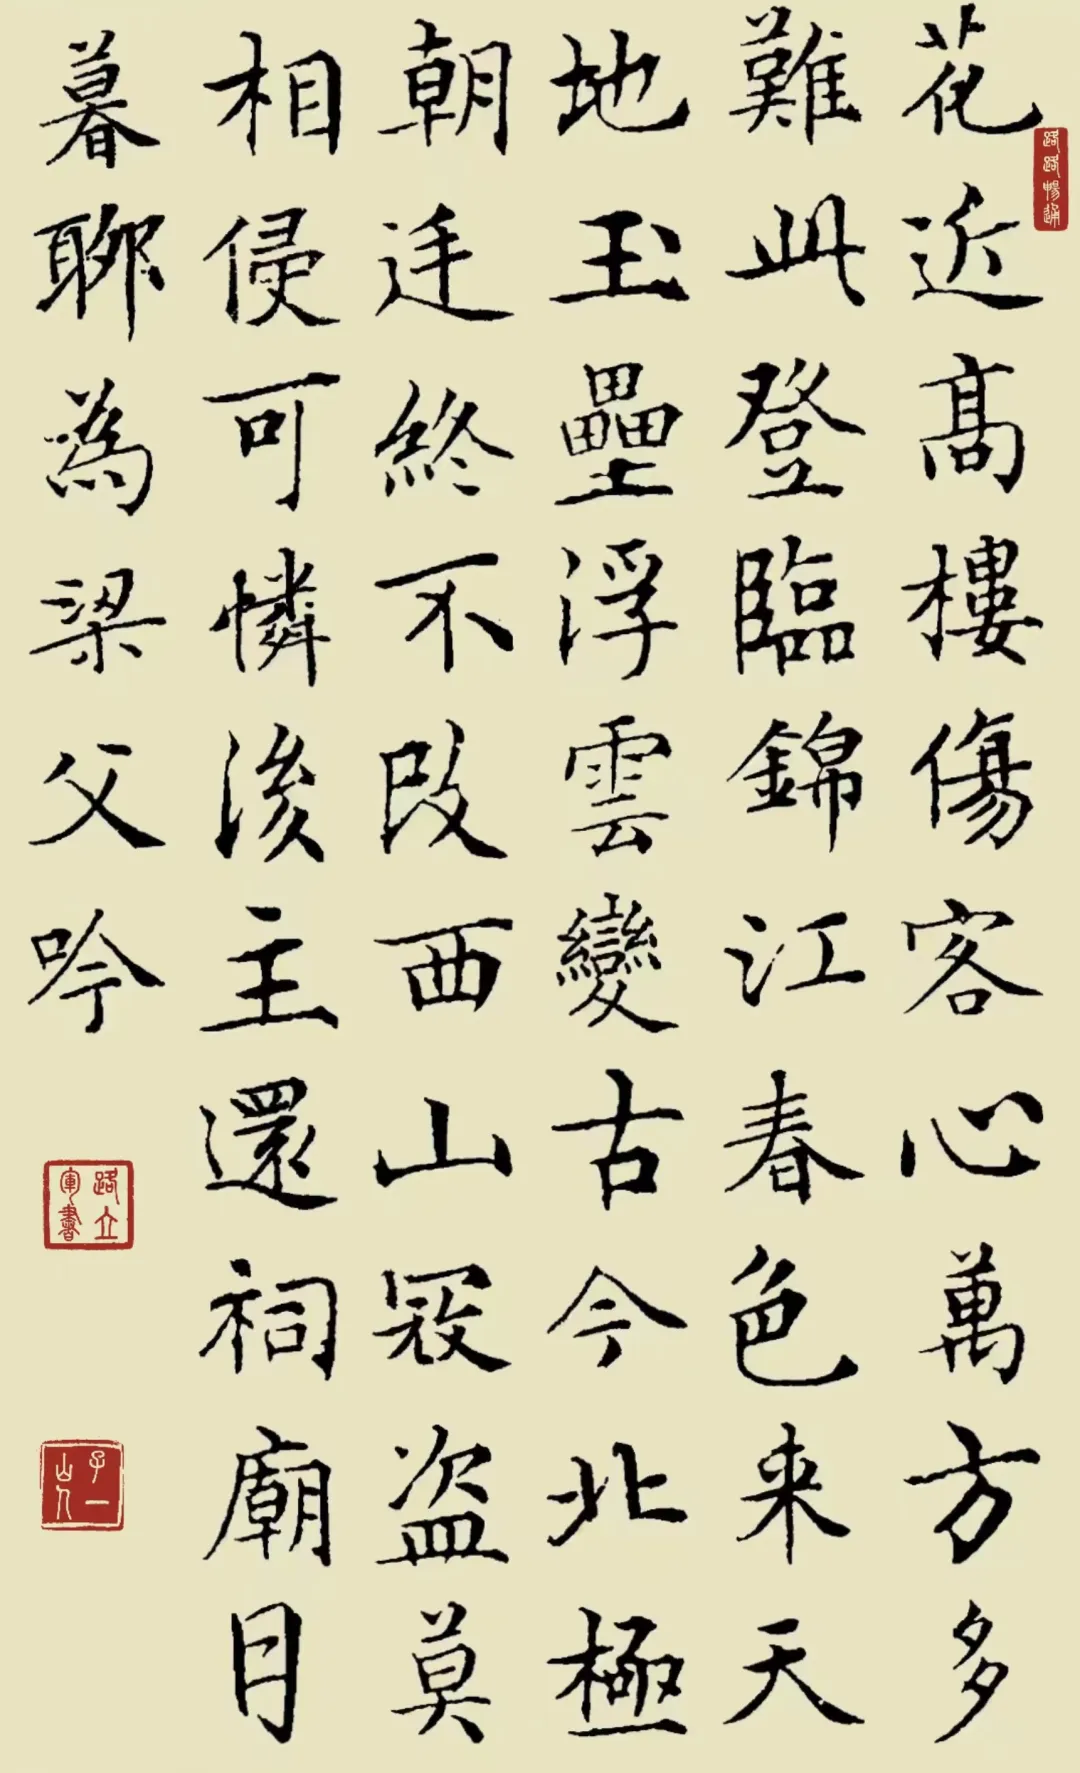 花近高樓傷客心萬方多
難此登臨錦江春色来天
地玉壘浮雲變古今北極
朝廷終不改西山寇盗莫
相侵可憐後主還祠廟日
暮聊為梁父吟
路路暢通
路立軍書
子一山人